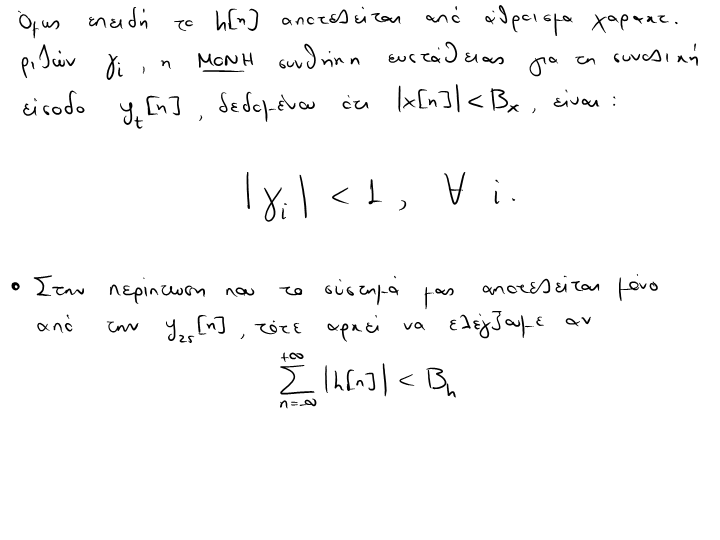 Όμως επειδή το h[n] αποτελείται από άθροισμα χαρακτ.
ριζών γᵢ, η ΜΟΝΗ συνθήκη ευστάθειας για τη συνολική
είσοδο yₜ[n], δεδομένου ότι |x[n]| < Bₓ, είναι:
|γᵢ| < 1, ∀ i.
• Στην περίπτωση που το σύστημά μας αποτελείται μόνο
από την y_zs[n], τότε αρκεί να ελέγξουμε αν
∑_{n=-∞}^{+∞} |h[n]| < B_h